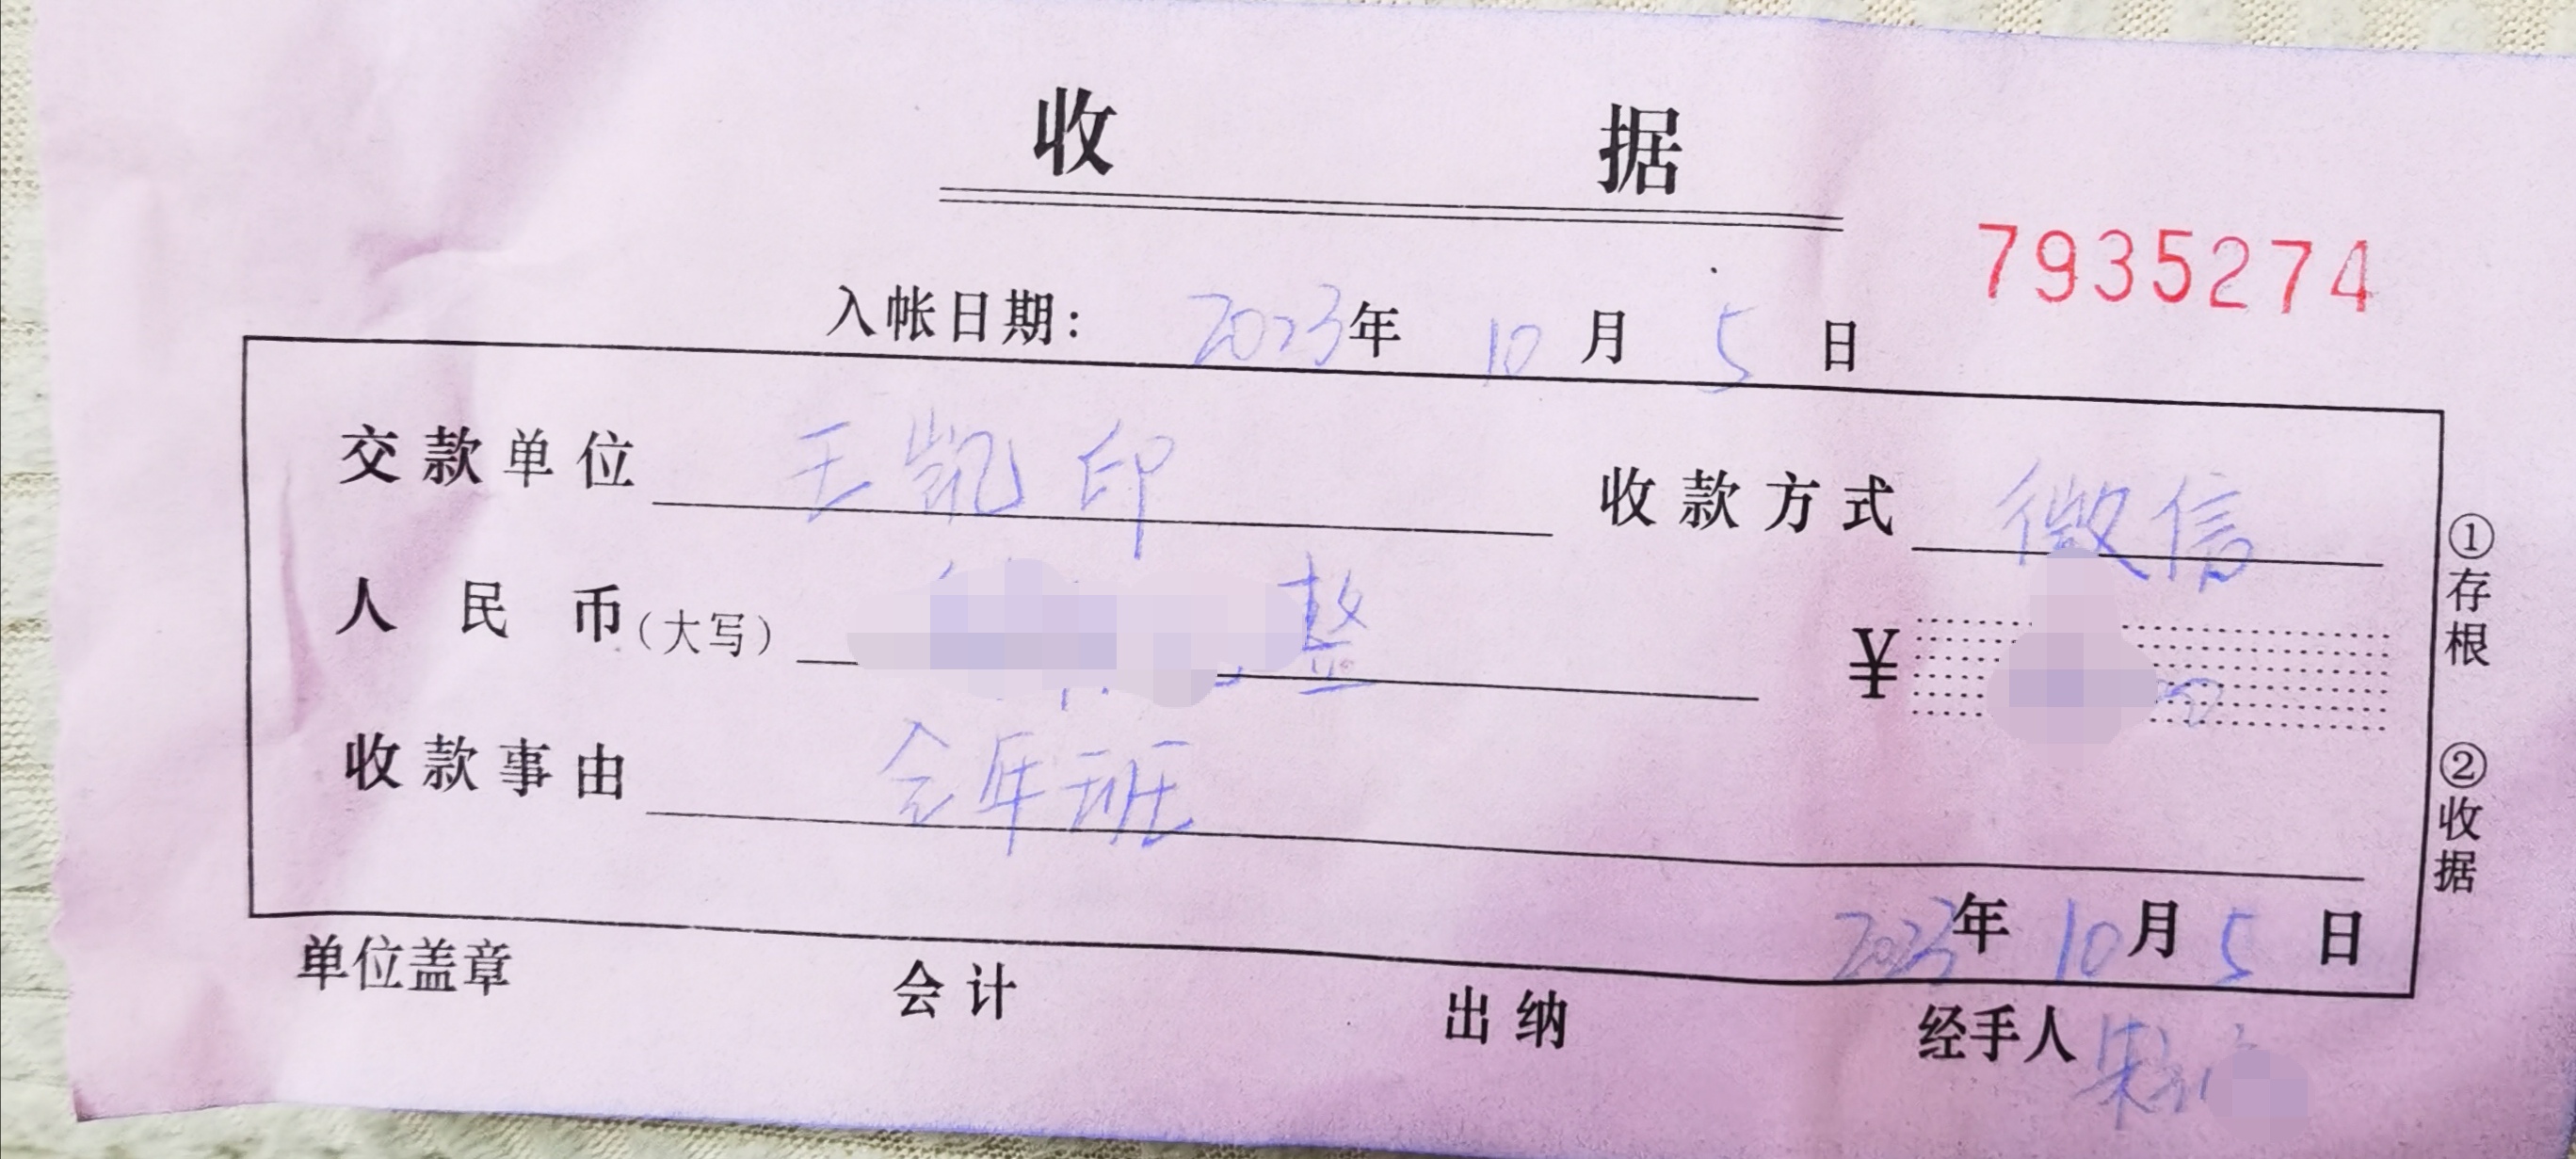 收据
7935274
入帐日期: 2023年 10 月 5 日
交款单位 王凯印 收款方式 微信
人民币(大写) 整 ¥
收款事由 全年班
2023年 10月 5 日
单位盖章 会计 出纳 经手人 朱
①存根 ②收据